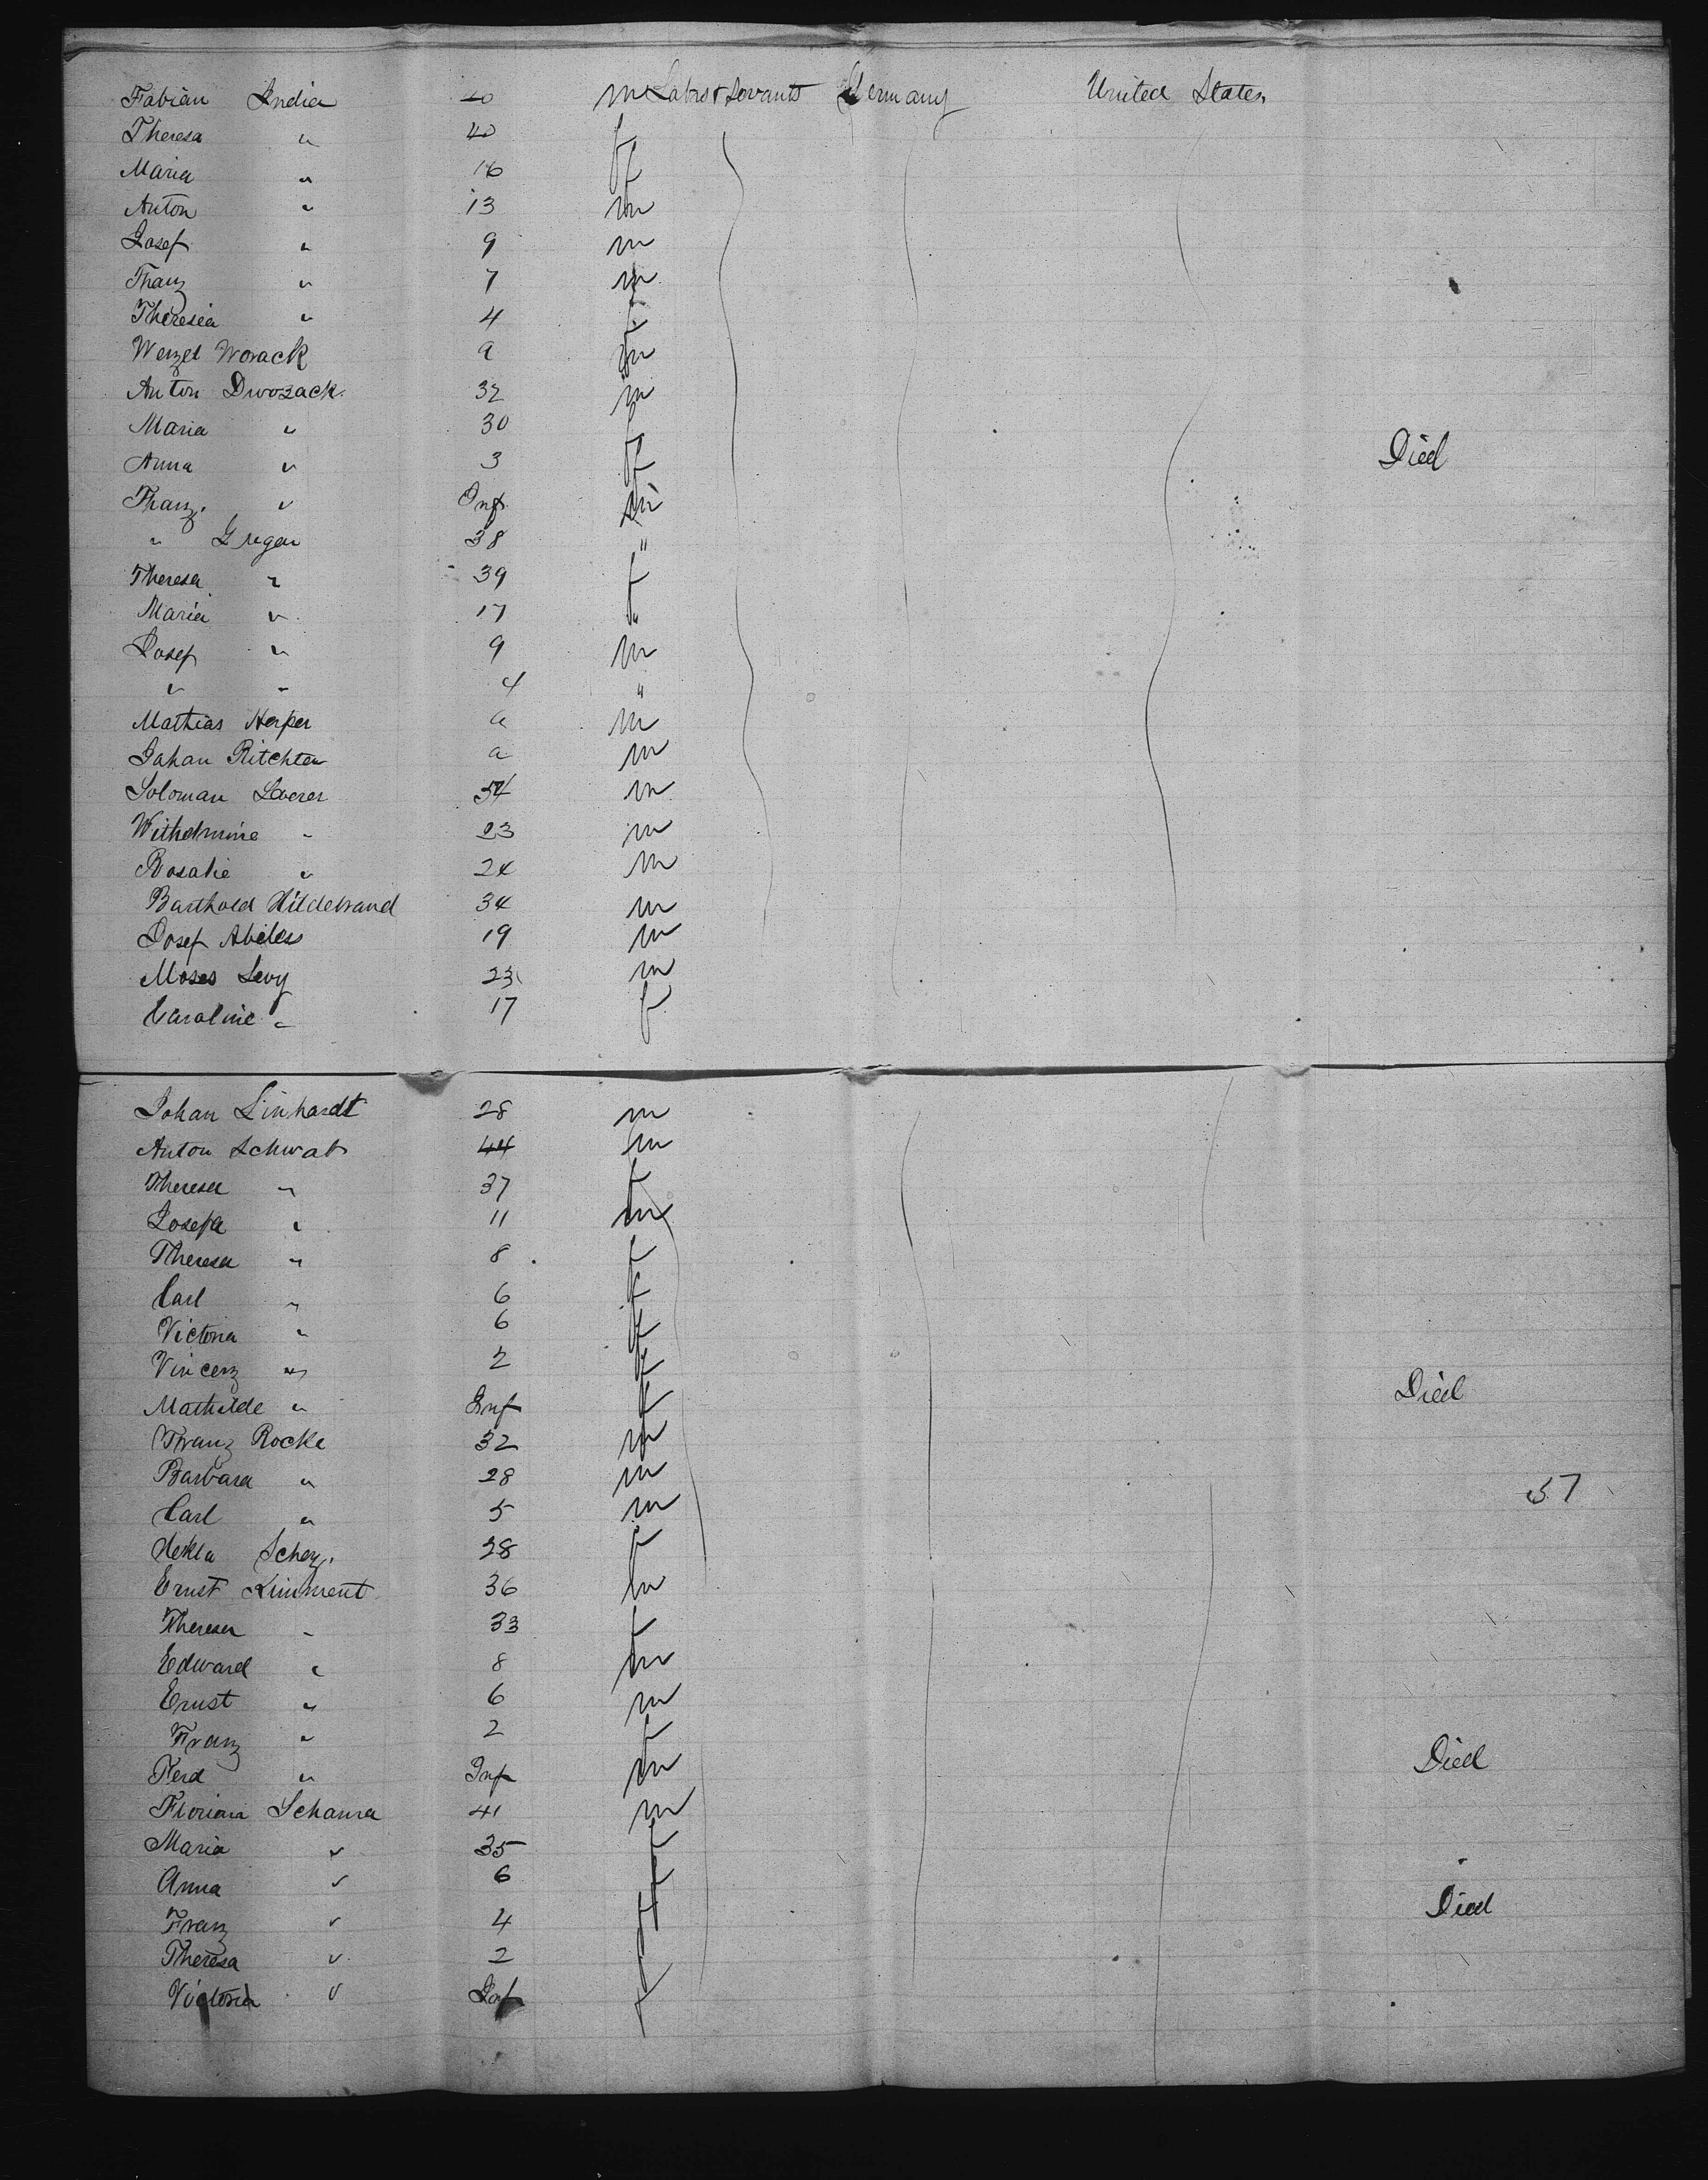 Fabian India 20 m Labor & Servants Germany United States
Theresa " 40 f
Maria " 16 f
Anton " 13 m
Josef " 9 m
Franz " 7 m
Theresia " 4 f
Wenzel Worack a m
Anton Dwozack 32 m
Maria " 30 f
Anna " 3 f Died
Franz. " Inf. m
" Gregor 38 "
Theresa " 39 f
Maria " 17 "
Josef " 9 m
" " 4 "
Mathias Herper a m
Johan Ritchten a m
Soloman Laverer 54 m
Wilhelmine " 23 m
Rosalie " 24 m
Barthold Hildebrand 34 m
Josef Abeless 19 m
Moses Levy 23 m
Caroline " 17 f
Johan Linhardt 28 m
Anton Schwab 44 m
Theresa " 37 f
Josefa " 11 m
Theresa " 8 f
Carl " 6 f
Victoria " 6 f
Vincenz " 2 f
Mathilde " Inf f Died
Franz Rocke 32 m
Barbara " 28 m
Carl " 5 m 57
Hekla Schez. 28 f
Ernst Kimment 36 m
Theresa " 33 f
Edward " 8 m
Ernst " 6 m
Franz " 2 f
Ferd " Inf m Died
Floriana Schama 41 m
Maria " 35 f
Anna " 6 f
Franz " 4 f Died
Theresa " 2 f
Victoria " Inf f